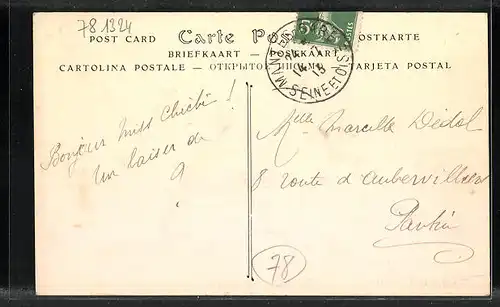 78 1324
POST CARD Carte POSTKARTE
BRIEFKAART - POSTKAART
CARTOLINA POSTALE - TARJETA POSTAL
5 5
POSTES
MANTES
SEINE ET OISE
13
Bonjour Miss Chichi !
Un baiser de
Mlle Marcelle Dédol
8 route d'Aubervilliers
Pantin
78